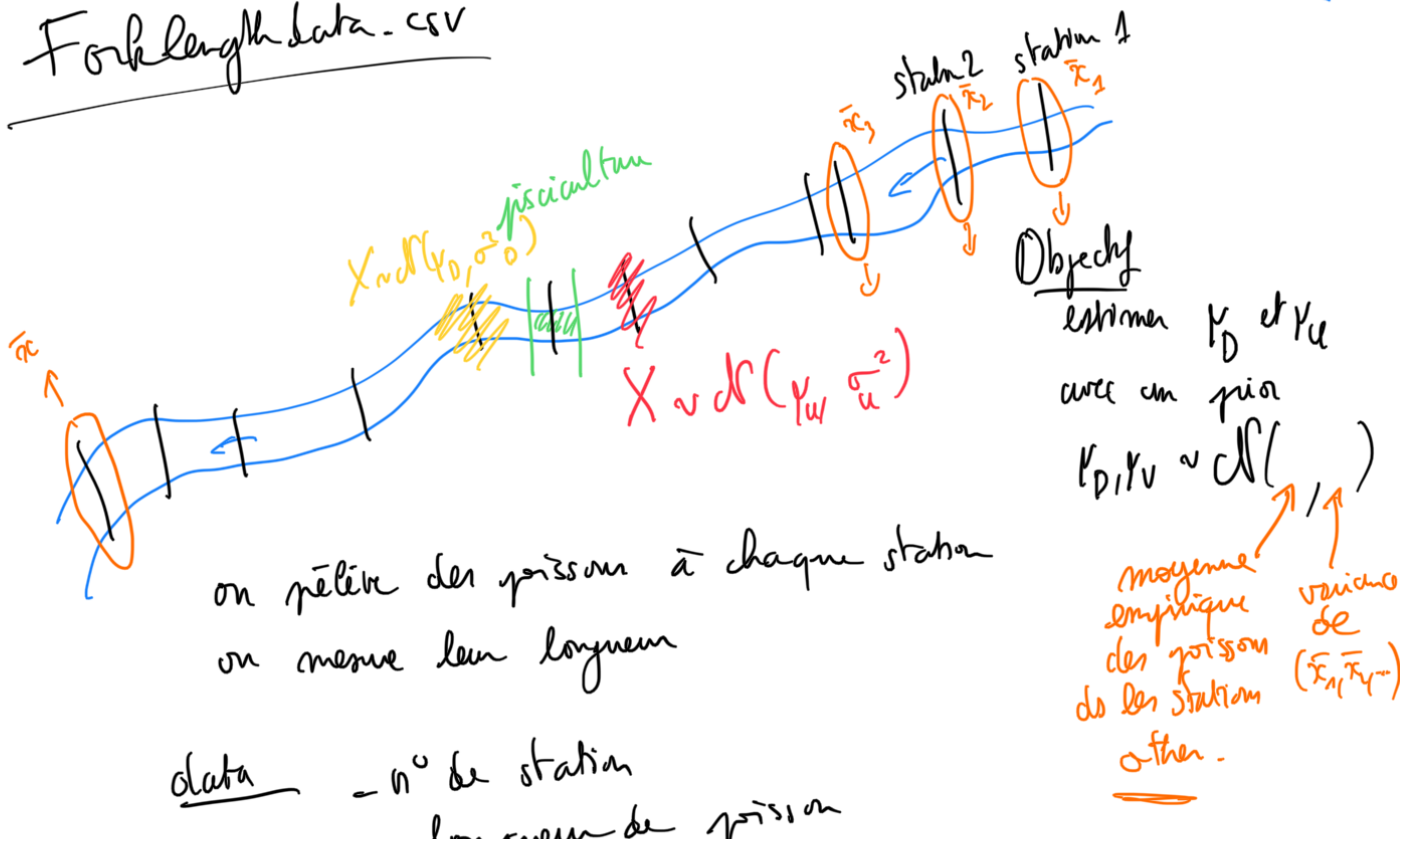 Forklengthdata.csv
station 1
x̄₁
statn 2
x̄₂
x̄₃
pisciculture
X ~ N(μ_D, σ²_D)
X ~ N(μ_u, σ²_u)
x̄
Objectif
estimer μ_D et μ_U
avec un prior
μ_D, μ_U ~ N( , )
moyenne
empirique
des poissons
ds les stations
other.
variance
de
(x̄₁, x̄₂, ...)
on prélève des poissons à chaque station
on mesure leur longueur
data
- n° de station
longueur de poisson